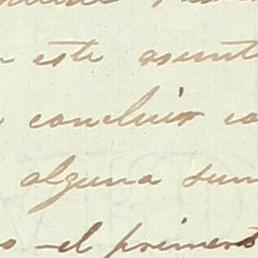 este asunt
concluir co
alguna sum
o el primero